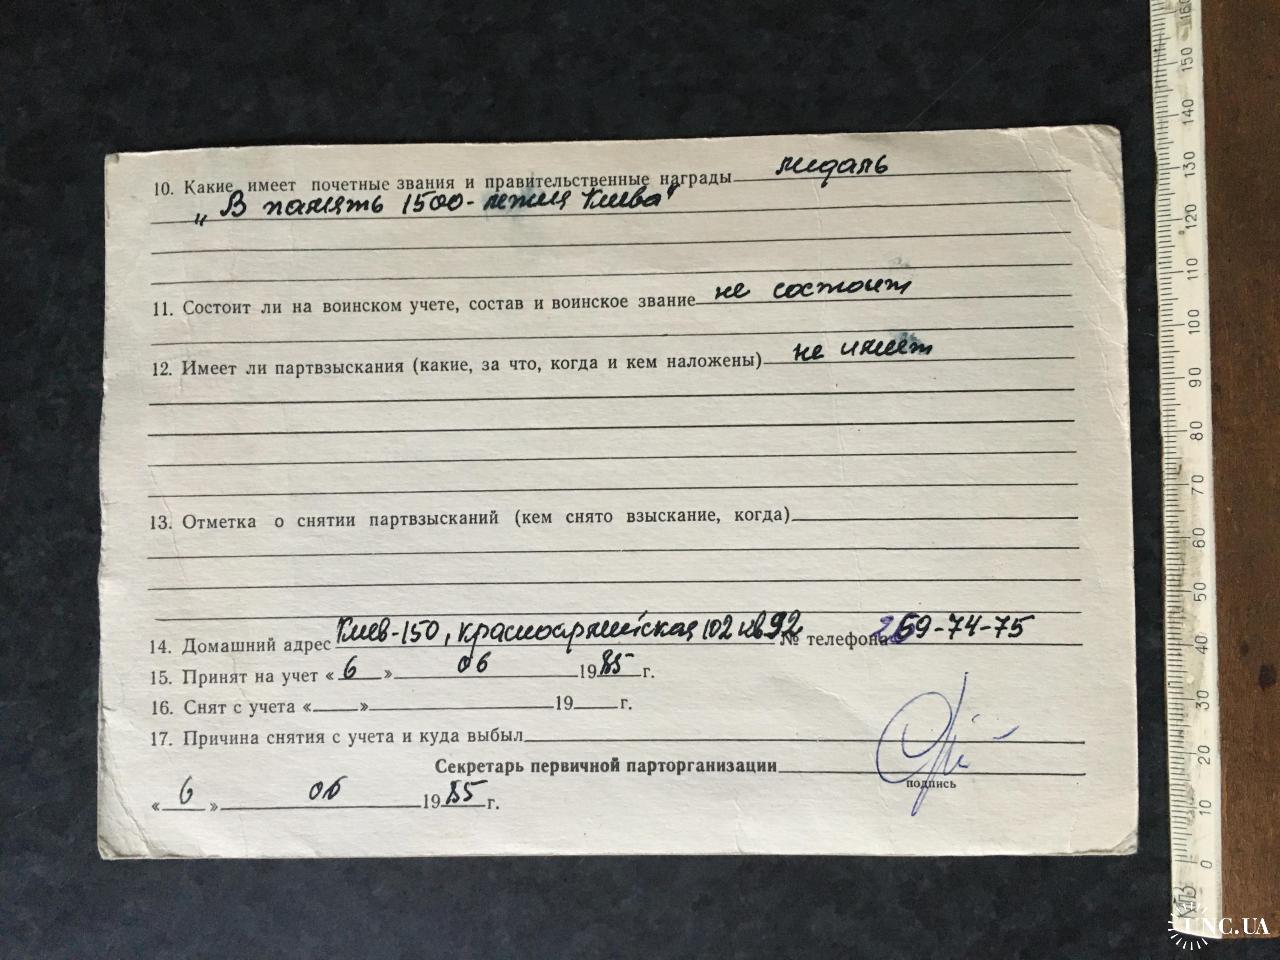 10. Какие имеет почетные звания и правительственные награды медаль
„В память 1500-летия Киева"
11. Состоит ли на воинском учете, состав и воинское звание не состоит
12. Имеет ли партвзыскания (какие, за что, когда и кем наложены) не имеет
13. Отметка о снятии партвзысканий (кем снято взыскание, когда)
14. Домашний адрес Киев-150, Красноармейская 102 кв 92 № телефона 269-74-75
15. Принят на учет « 6 » 06 1985 г.
16. Снят с учета « » 19 г.
17. Причина снятия с учета и куда выбыл
Секретарь первичной парторганизации
подпись
« 6 » 06 1985 г.
0 10 20 30 40 50 60 70 80 90 100 110 120 130 140 150 160
UNC.UA